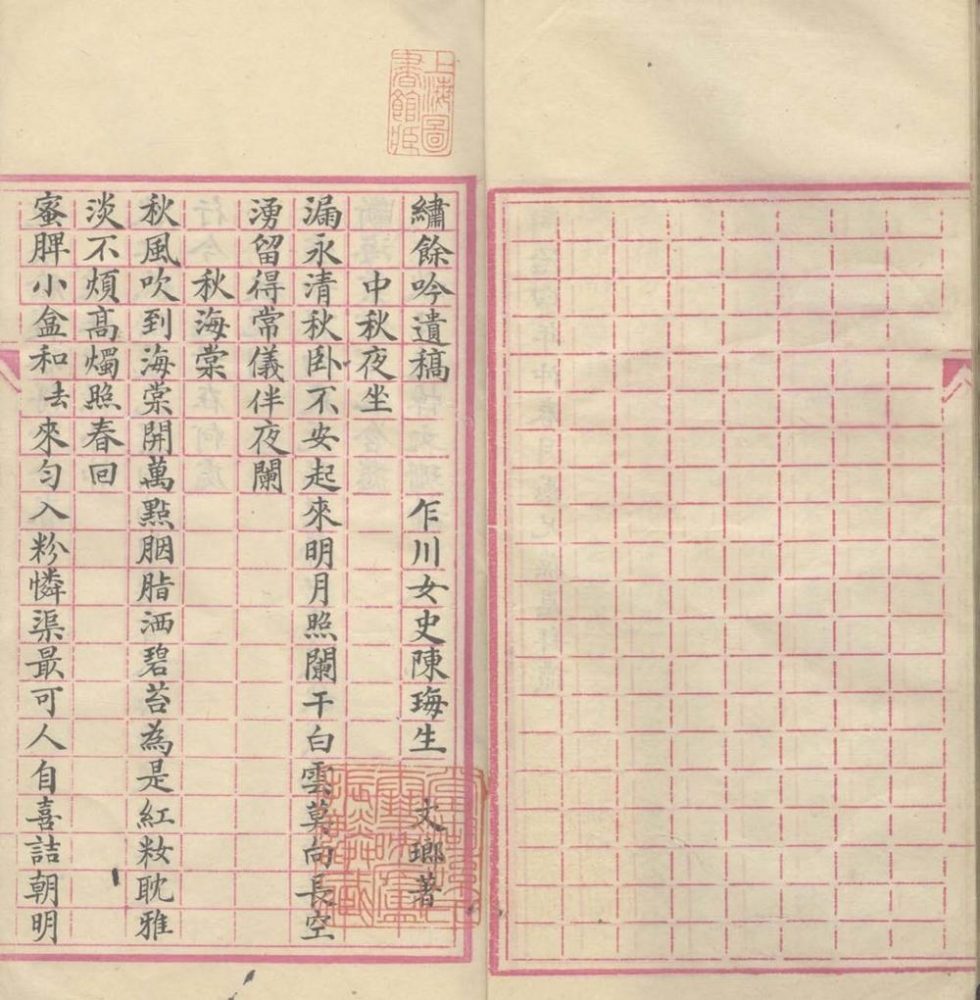 上海圖
書館藏
繡餘吟遺稿 乍川女史陳瑇生 文瑯著
中秋夜坐
漏永清秋卧不安起來明月照闌干白雲莫向長空
湧留得常儀伴夜闌
秋海棠
秋風吹到海棠開萬點胭脂洒碧苔為是紅粧耽雅
淡不煩高燭照春回
蜜脾小盒和去來勻入粉憐渠最可人自喜詰朝明